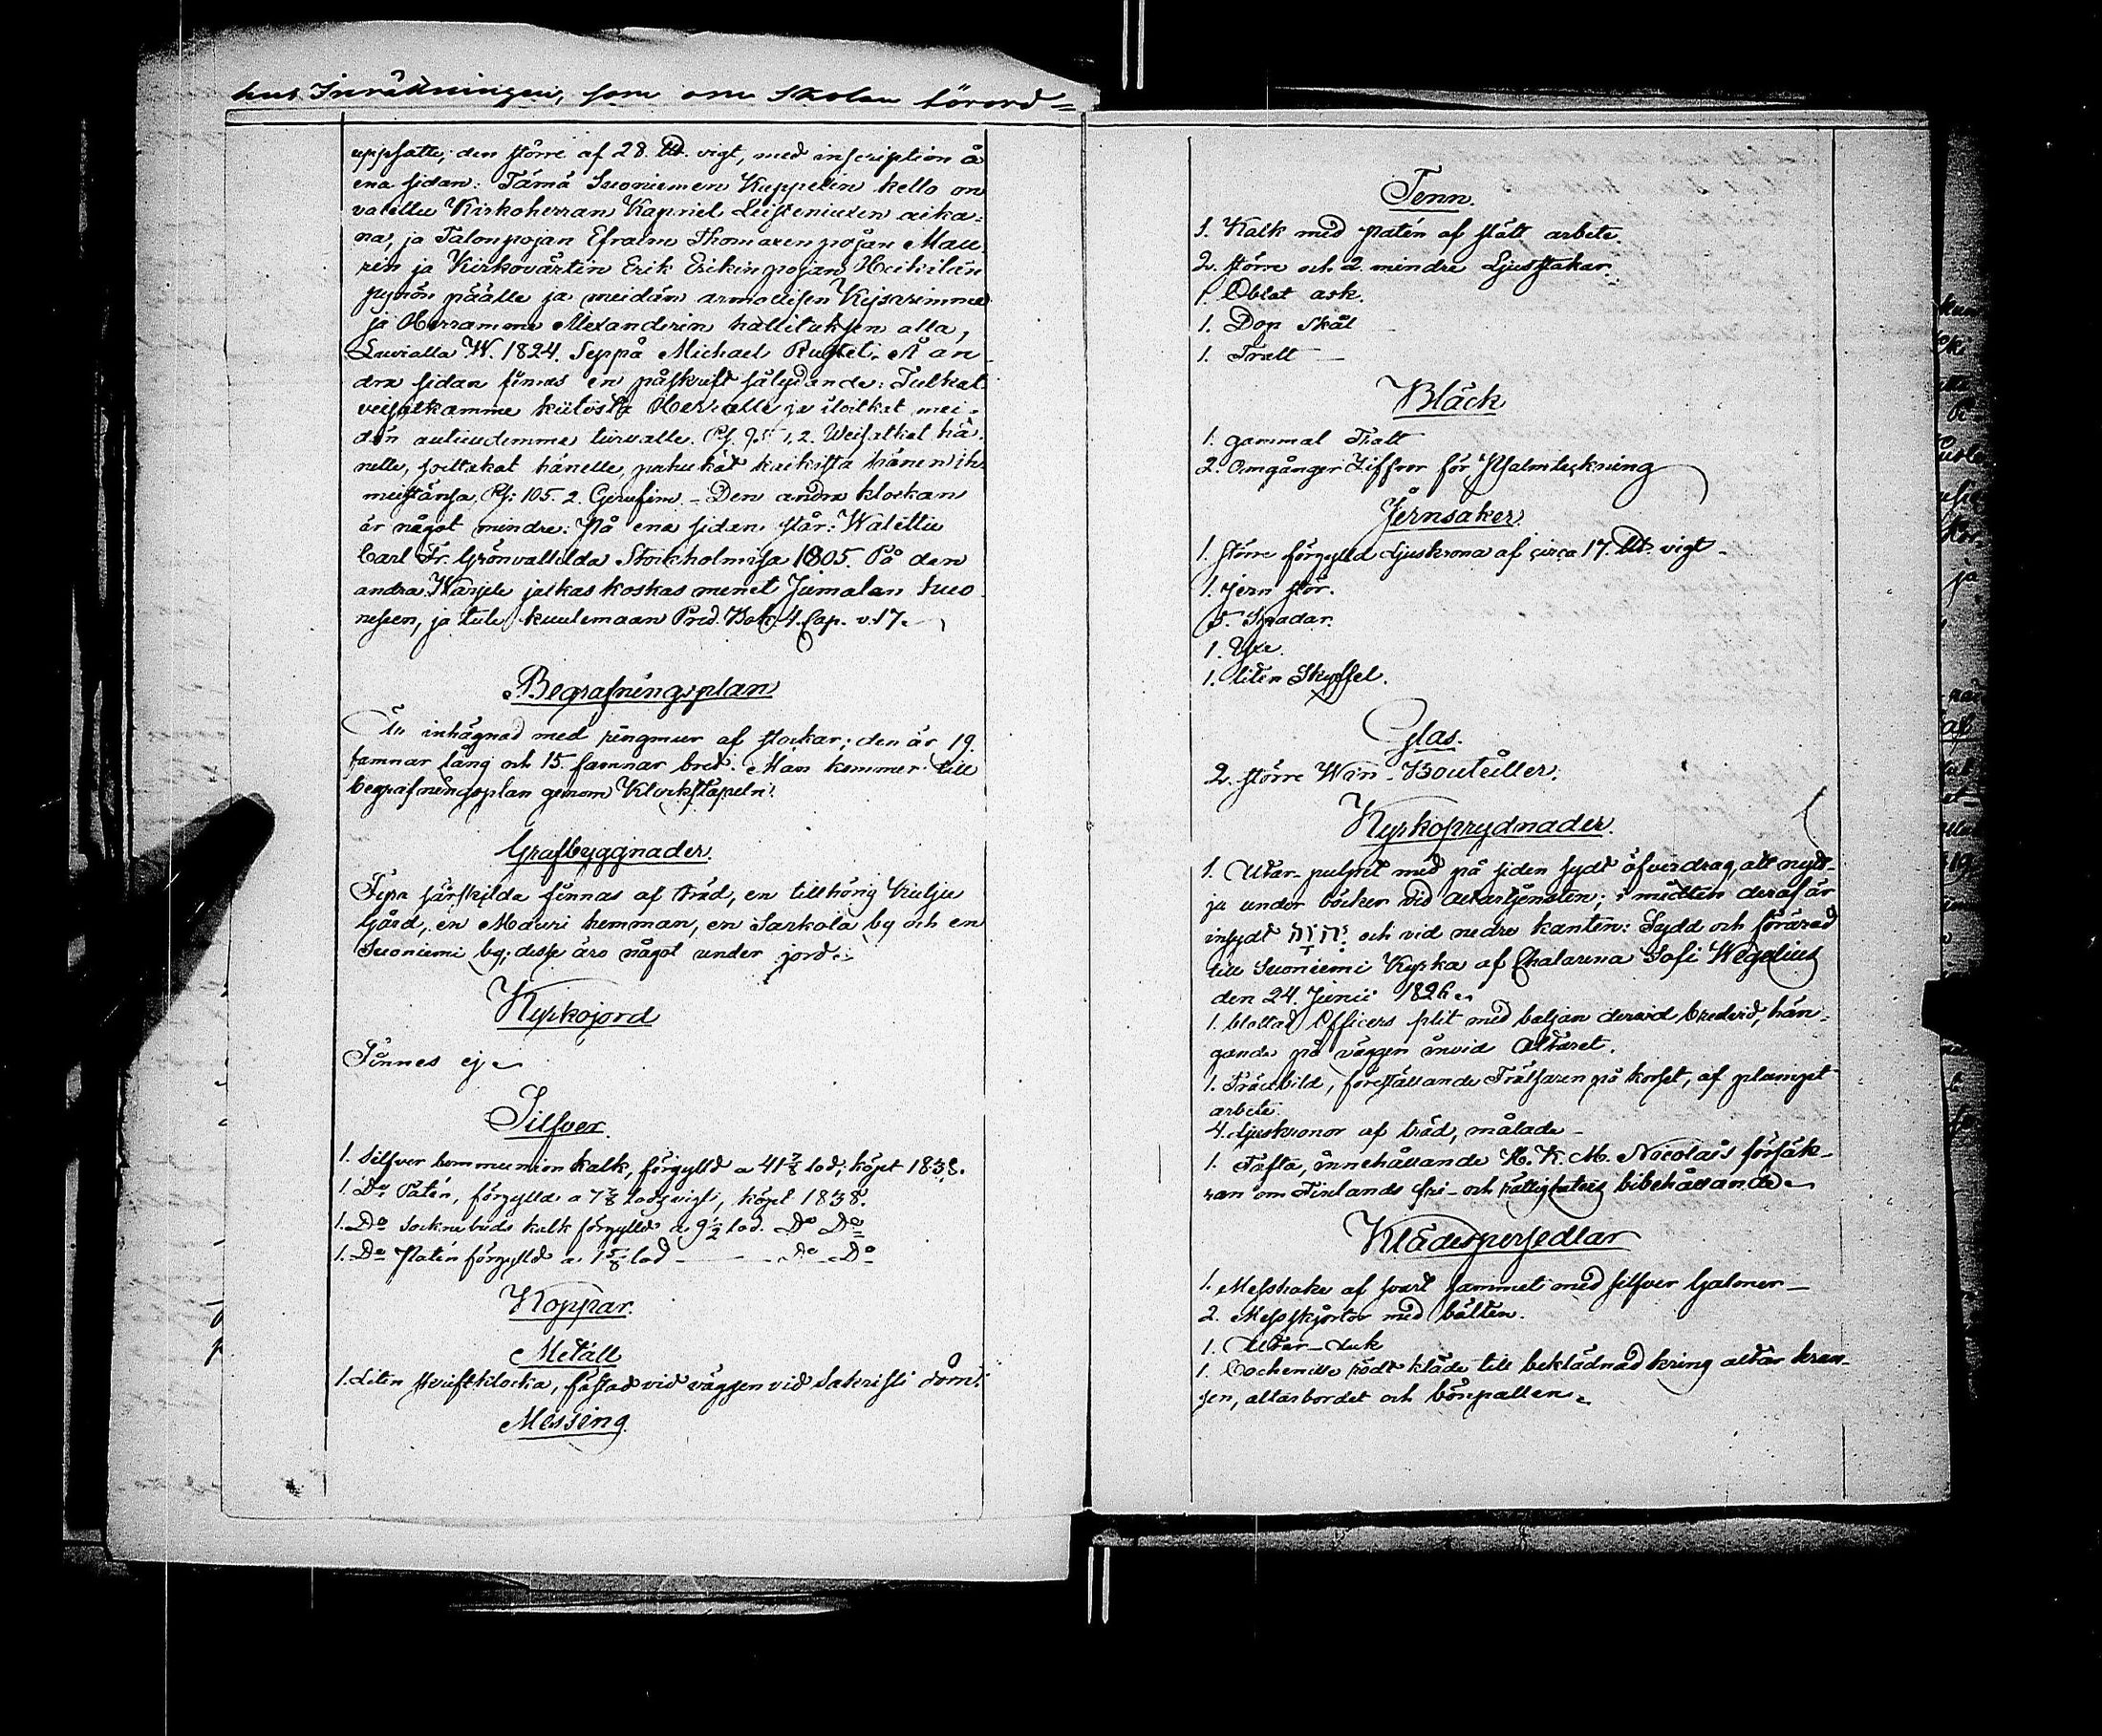 hus Inräkningen, som om skolan förord=
uppsatte; den större af 28. ℔. vigt, med inscription å
ena sidan: Tämä Suoniemen Kappelin kello on
valettu Kirkoherran Kapriel Leisteniuxen aika=
na, ja Talonpojan Efraim Thomaxen pojan Mau
rin ja Kirkovärtin Erik Erikin pojan Heikilän
pynön päälle ja meidän armollisen Keisarimme
ja Herramme Alexanderin hallituksen alla,
Luvialla W. 1824. Seppä Michael Rustel. Å an
dra sidan finnes en påskrift sålydande: Tulkat
veisatkamme kiitosta Herralle ja iloitkat mei=
dän autuudemme turvalle. Ps. 95 1, 2. Weisatkat hä
nelle, soittakat hänelle, puhukat kaikista hänen ih
meistänsä, Ps: 105. 2. Gerufin. - Den andra klockan
är något mindre: På ena sidan står: Walettu
Carl Fr. Grönvallilda Stockholmisa 1805. På den
andra: Warjele jalkas koskas menet Jumalan huo
nesen, ja tule kuulemaan Pred. Bok. 4. Cap. v. 17.
Begrafningsplan
Är inhägnad med ringmur af stockar; den är 19.
famnar lång och 15. famnar bred. Man kommer till
begrafningsplan genom Klockstapeln.
Grafbyggnader.
Fyra särskilda finnas af träd, en tillhörig Kulju
Gård, en Mauri hemman, en Sarkola by och en
Suoniemi by; desse äro något under jord.
Kyrkojord
Finnes ej.
Silfver.
1. Silfver communion kalk, förgylld a 41 7/8 lod; köpt 1838.
1. Do Patén, förgylld a 7 7/8 lods vigt, köpt 1838.
1. Do Sockne buds kalk förgylld a 9 1/2 lod. Do Do
1. Do Patén förgylld a 1 5/8 lod — Do Do
Koppar.
Metall
1. Liten skriftklocka, fästad vid väggen vid Sakristi dörn.
Messing.
Tenn.
1. Kalk med patén af slätt arbete.
2. större och 2. mindre Ljusstakar.
1. Oblat ask.
1. Dop skål
1. Tratt —
Bläck
1. gammal Tratt
2. Omgånger Ziffror för Psalmteckning
Jernsaker
1. större förgylld Ljuskrona af circa 17. ℔. vigt -
1. jern stör.
5. Spadar.
1. Yxe.
1. liten Skyffel.
Glas.
2. större Win-Bouteiller.
Kyrkoprydnader.
1. Altar-pulpet med på siden sydt öfverdrag, att nytt-
ja under böcker vid Altartjensten; i midten deraf är
insydt יהוה och vid nedre kanten: Sydd och förärad
till Suoniemi Kyrka af Chatarina Sofi Wegelius
den 24. Junii 1826.
1. blottad Officers plit med baljan derved bredevid, hän-
gande på väggen invid Altaret.
1. Trädbild, föreställande Frälsaren på korset, af plumpt
arbete.
4. Ljuskronor af träd, målade -
1. Tafla, innehållande H. K. M. Nicolais försäk-
ran om Finlands fri- och rättigheters bibehållande.
Klädespersedlar
1. Messhake af svart sammet med silfver Galoner —
2. Messskjortor med bälten.
1. Altar-duk
1. Cochenille rödt kläde till beklädnad kring altar kran-
sen, altarbordet och bönpallen.